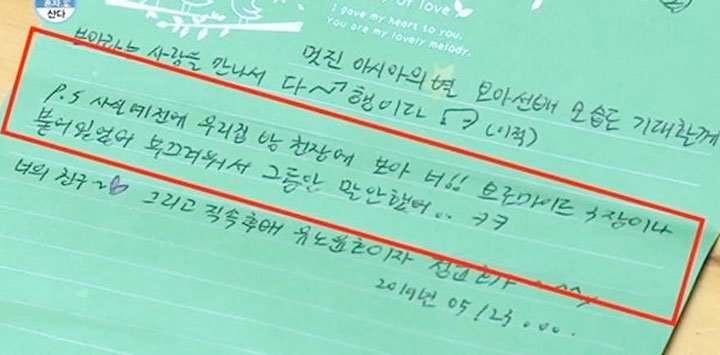 혼자
산다
of love
I gave my heart to you.
You are my lovely melody.
멋진 아시아의 별 보아선배 모습도 기대할게
보아라는 사람을 만나서 다~행이다 (이적)
P.S 사실 예전에 우리집 방 천장에 보아 너!! 브로마이드 3장이나
붙어있었어 부끄러워서 그동안 말안했어.. ㅋㅋ
너의 친구~ 그리고 직속후배 유노윤호이자 정윤호가
2019년 05/23 ...